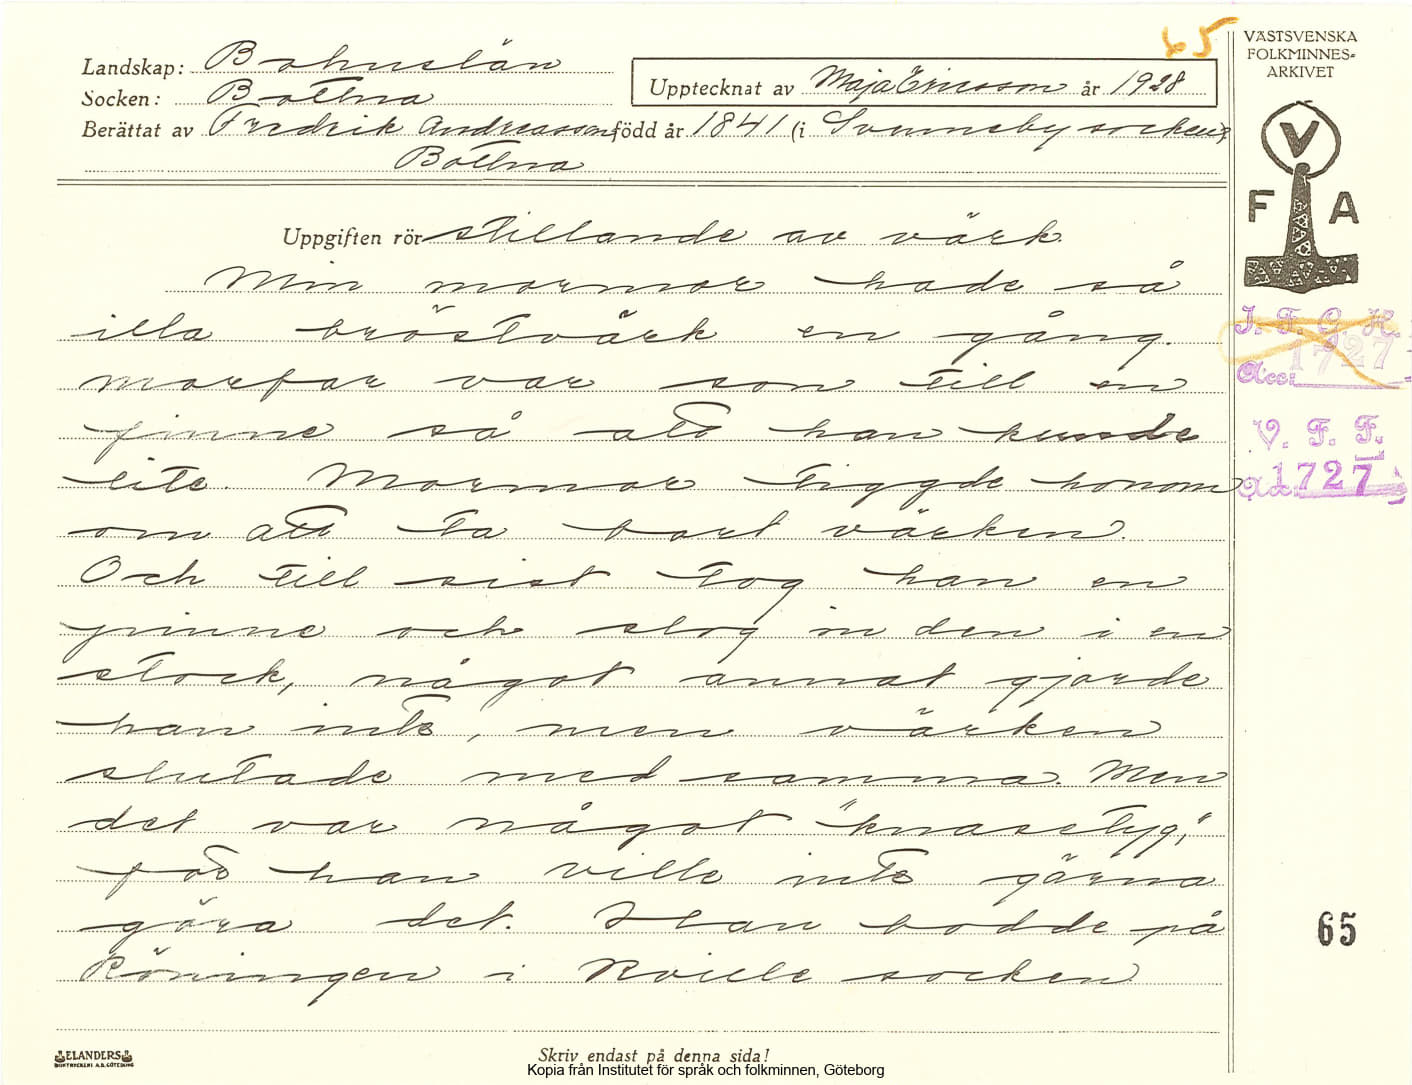 65
VÄSTSVENSKA
FOLKMINNES=
ARKIVET
Landskap: Bohuslän
Socken: Bottna
Upptecknat av Maja Ericsson år 1928
Berättat av Fredrik Andreasson född år 1841 (i Svenneby socken)
Bottna
V
F A
Uppgiften rör stillande av värk.
Min mormor hade så
illa bröstvärk en gång.
Morfar var son till en
finne så att han kunde
lite. Mormor tiggde honom
om att ta bort värken.
Och till sist tog han en
pinne och slog in den i en
stock, något annat gjorde
han inte, men värken
slutade med samma. Men
det var något "knasetyg,"
för han ville inte gärna
göra det. Han bodde på
Röningen i Kville socken
I. F. G. H.
1727
Acc:
V. F. F.
Acc. 1727
65
ELANDERS
BOKTRYCKERI A.B. GÖTEBORG
Skriv endast på denna sida!
Kopia från Institutet för språk och folkminnen, Göteborg